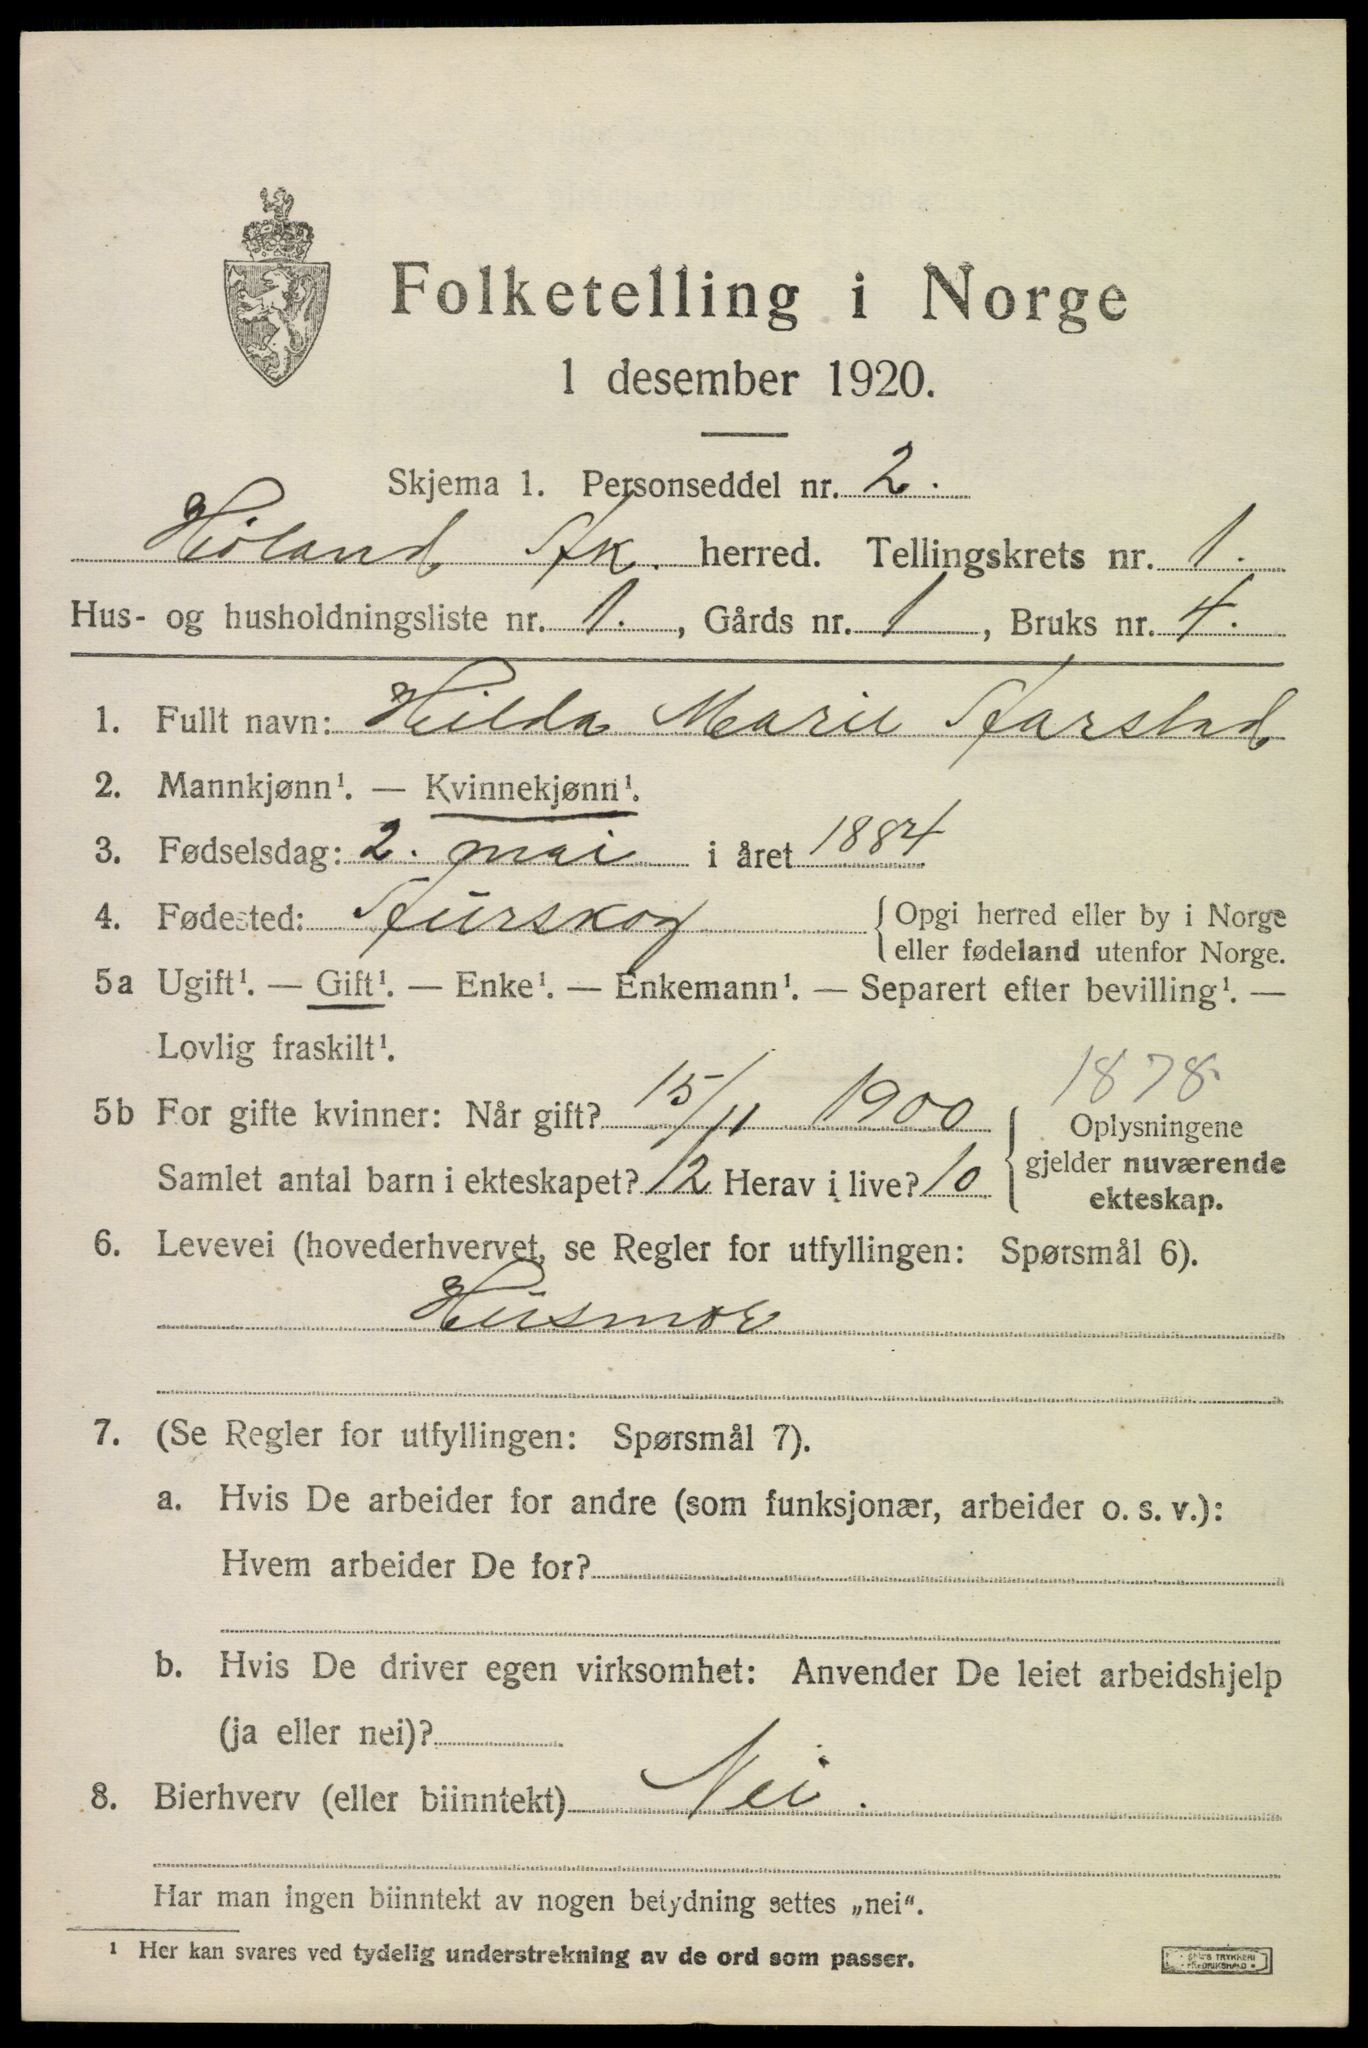 Folketelling i Norge
1 desember 1920.
Skjema 1. Personseddel nr. 2.
Höland Ak. herred. Tellingskrets nr. 1.
Hus- og husholdningsliste nr. 1., Gårds nr. 1, Bruks nr. 4.
1. Fullt navn: Hilda Marie Aarstad
2. Mannkjønn¹. — Kvinnekjønn¹.
3. Fødselsdag: 2. mai i året 1884
4. Fødested: Aurskog { Opgi herred eller by i Norge
eller fødeland utenfor Norge.
5a Ugift¹. — Gift¹. — Enke¹. — Enkemann¹. — Separert efter bevilling¹. —
Lovlig fraskilt¹.
1878.
5b For gifte kvinner: Når gift? 15/11 1900 { Oplysningene
gjelder nuværende
ekteskap.
Samlet antal barn i ekteskapet? 12 Herav i live? 10
6. Levevei (hovederhvervet, se Regler for utfyllingen: Spørsmål 6).
Husmor
7. (Se Regler for utfyllingen: Spørsmål 7).
a. Hvis De arbeider for andre (som funksjonær, arbeider o. s. v.):
Hvem arbeider De for?
b. Hvis De driver egen virksomhet: Anvender De leiet arbeidshjelp
(ja eller nei)?
8. Bierhverv (eller biinntekt) Nei.
Har man ingen biinntekt av nogen betydning settes „nei“.
¹ Her kan svares ved tydelig understrekning av de ord som passer.
TRYKKERI
FREDRIKSHALD